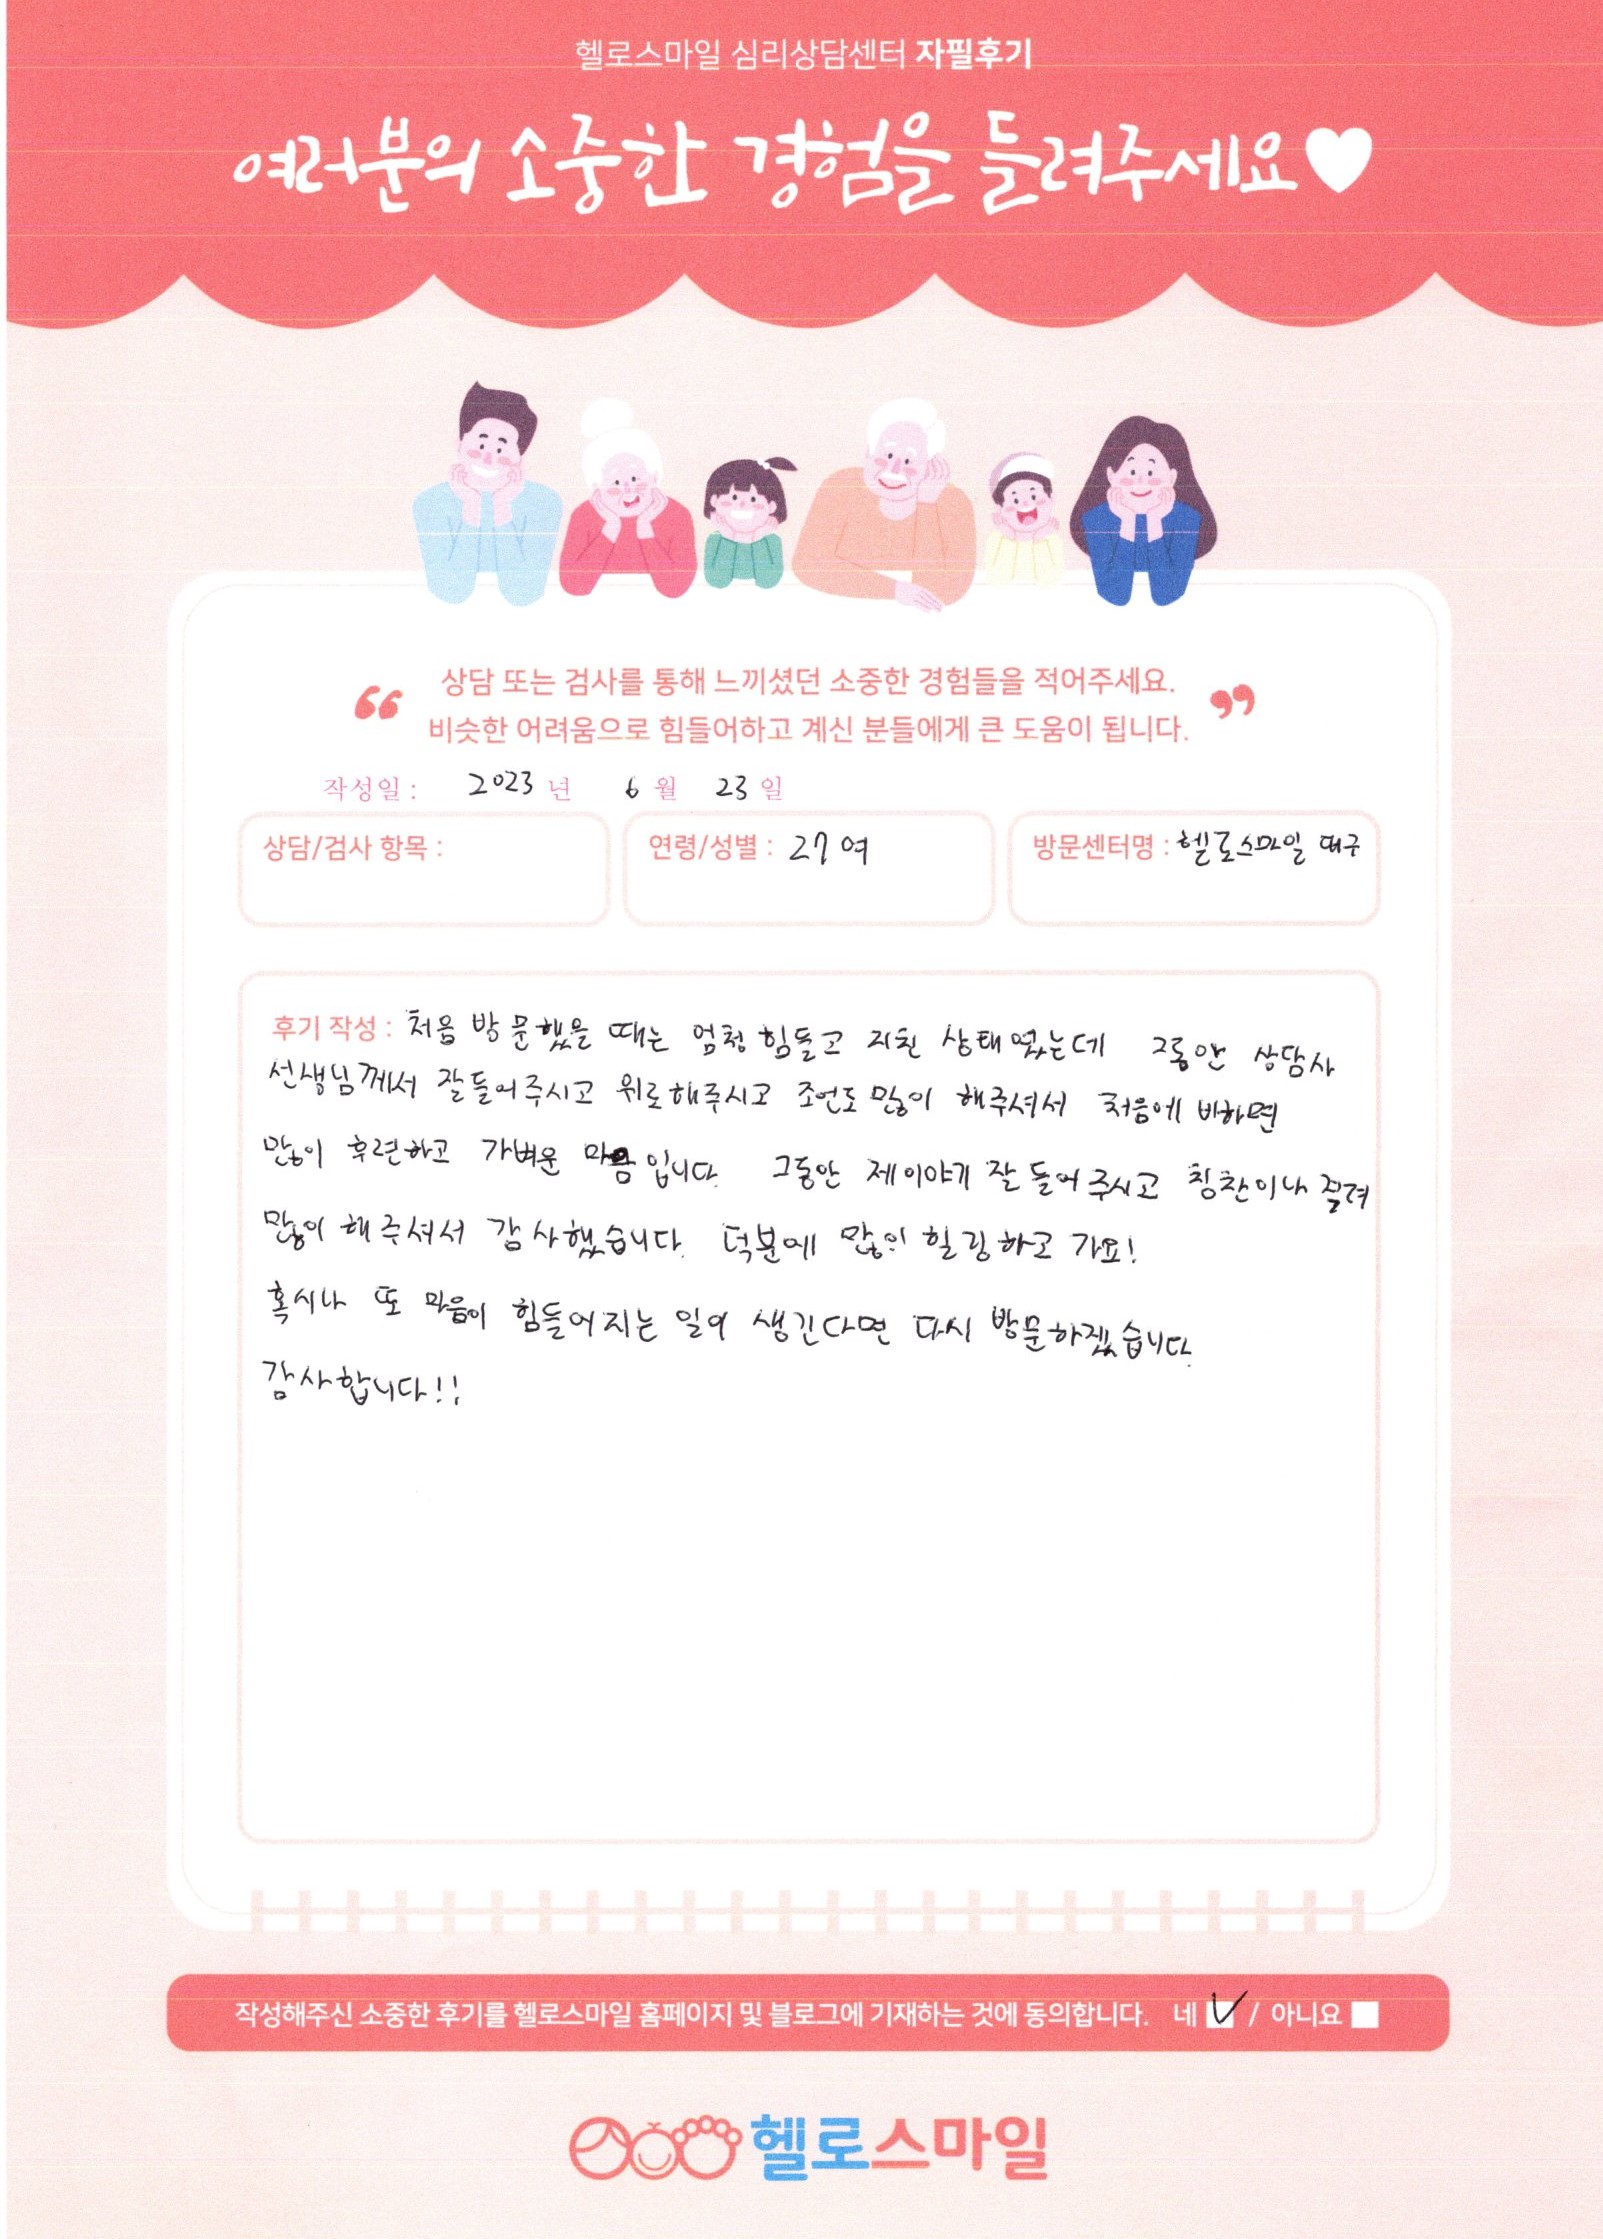 헬로스마일 심리상담센터 자필후기
여러분의 소중한 경험을 들려주세요
상담 또는 검사를 통해 느끼셨던 소중한 경험들을 적어주세요.
비슷한 어려움으로 힘들어하고 계신 분들에게 큰 도움이 됩니다.
작성일 : 2023 년 6 월 23 일
상담/검사 항목 : 연령/성별 : 27 여 방문센터명 : 헬로스마일 대구
후기 작성 : 처음 방문했을 때는 엄청 힘들고 지친 상태였는데 그동안 상담사
선생님께서 잘 들어주시고 위로해주시고 조언도 많이 해주셔서 처음에 비하면
많이 후련하고 가벼운 마음입니다. 그동안 제 이야기 잘 들어주시고 칭찬이나 격려
많이 해주셔서 감사했습니다. 덕분에 많이 힐링하고 가요!
혹시나 또 마음이 힘들어지는 일이 생긴다면 다시 방문하겠습니다.
감사합니다!!
작성해주신 소중한 후기를 헬로스마일 홈페이지 및 블로그에 기재하는 것에 동의합니다. 네 / 아니요
헬로스마일